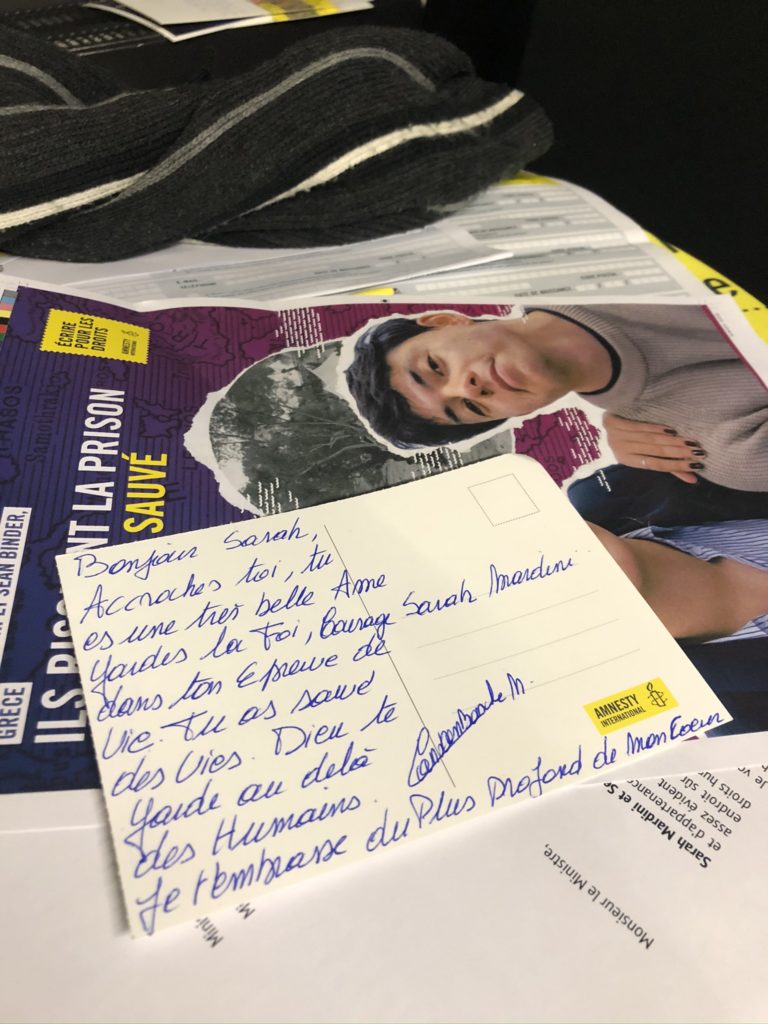 ÉCRIRE
POUR LES
DROITS
AMNESTY
INTERNATIONAL
Samothrak
NT LA PRISON
SAUVÉ
ET SEAN BINDER,
GRÈCE
ILS RISQ
Bonjour Sarah,
Accroches toi, tu
es une très belle Ame
gardes la Foi, Courage
dans ton Epreuve de
Vie. Tu as sauvé
des Vies. Dieu te
garde au delà
des Humains.
Je t'embrasse du Plus profond de Mon Coeur
Sarah Mardini
AMNESTY
INTERNATIONAL
Sarah Mardini et S
et d'appartenanc
endroit sûr
assez évident
droits hu
Monsieur le Ministre,